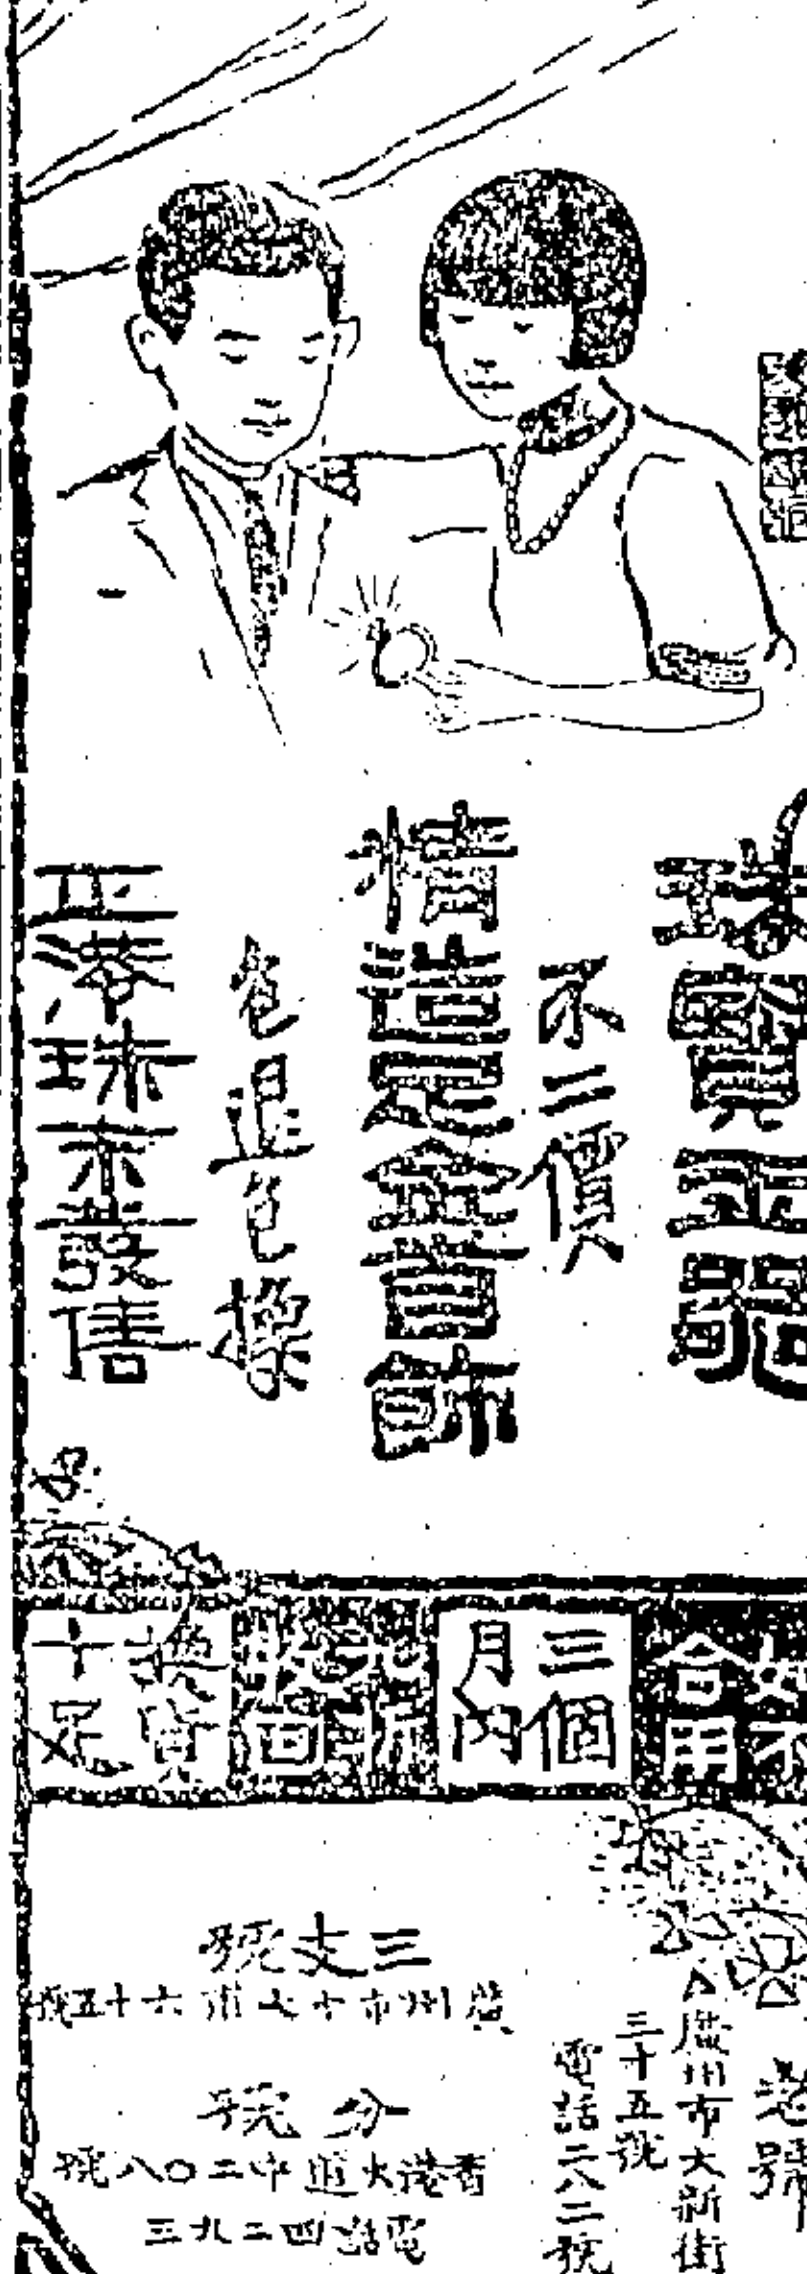 珠寶玉器
不二價
精造足金首飾
包退包換
正濂珠末發售
如不
合用
三個
月內
原銀
找回
換貨
十足
老號
廣州市大新街
三十五號
電話二八二號
三支號
廣州市十七甫六十五號
分號
香港大道中二〇八號
電話四二九三